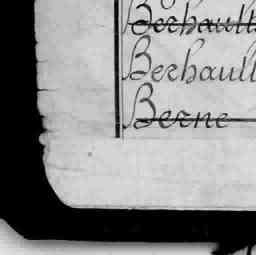 Berhault
Berhault
Berne